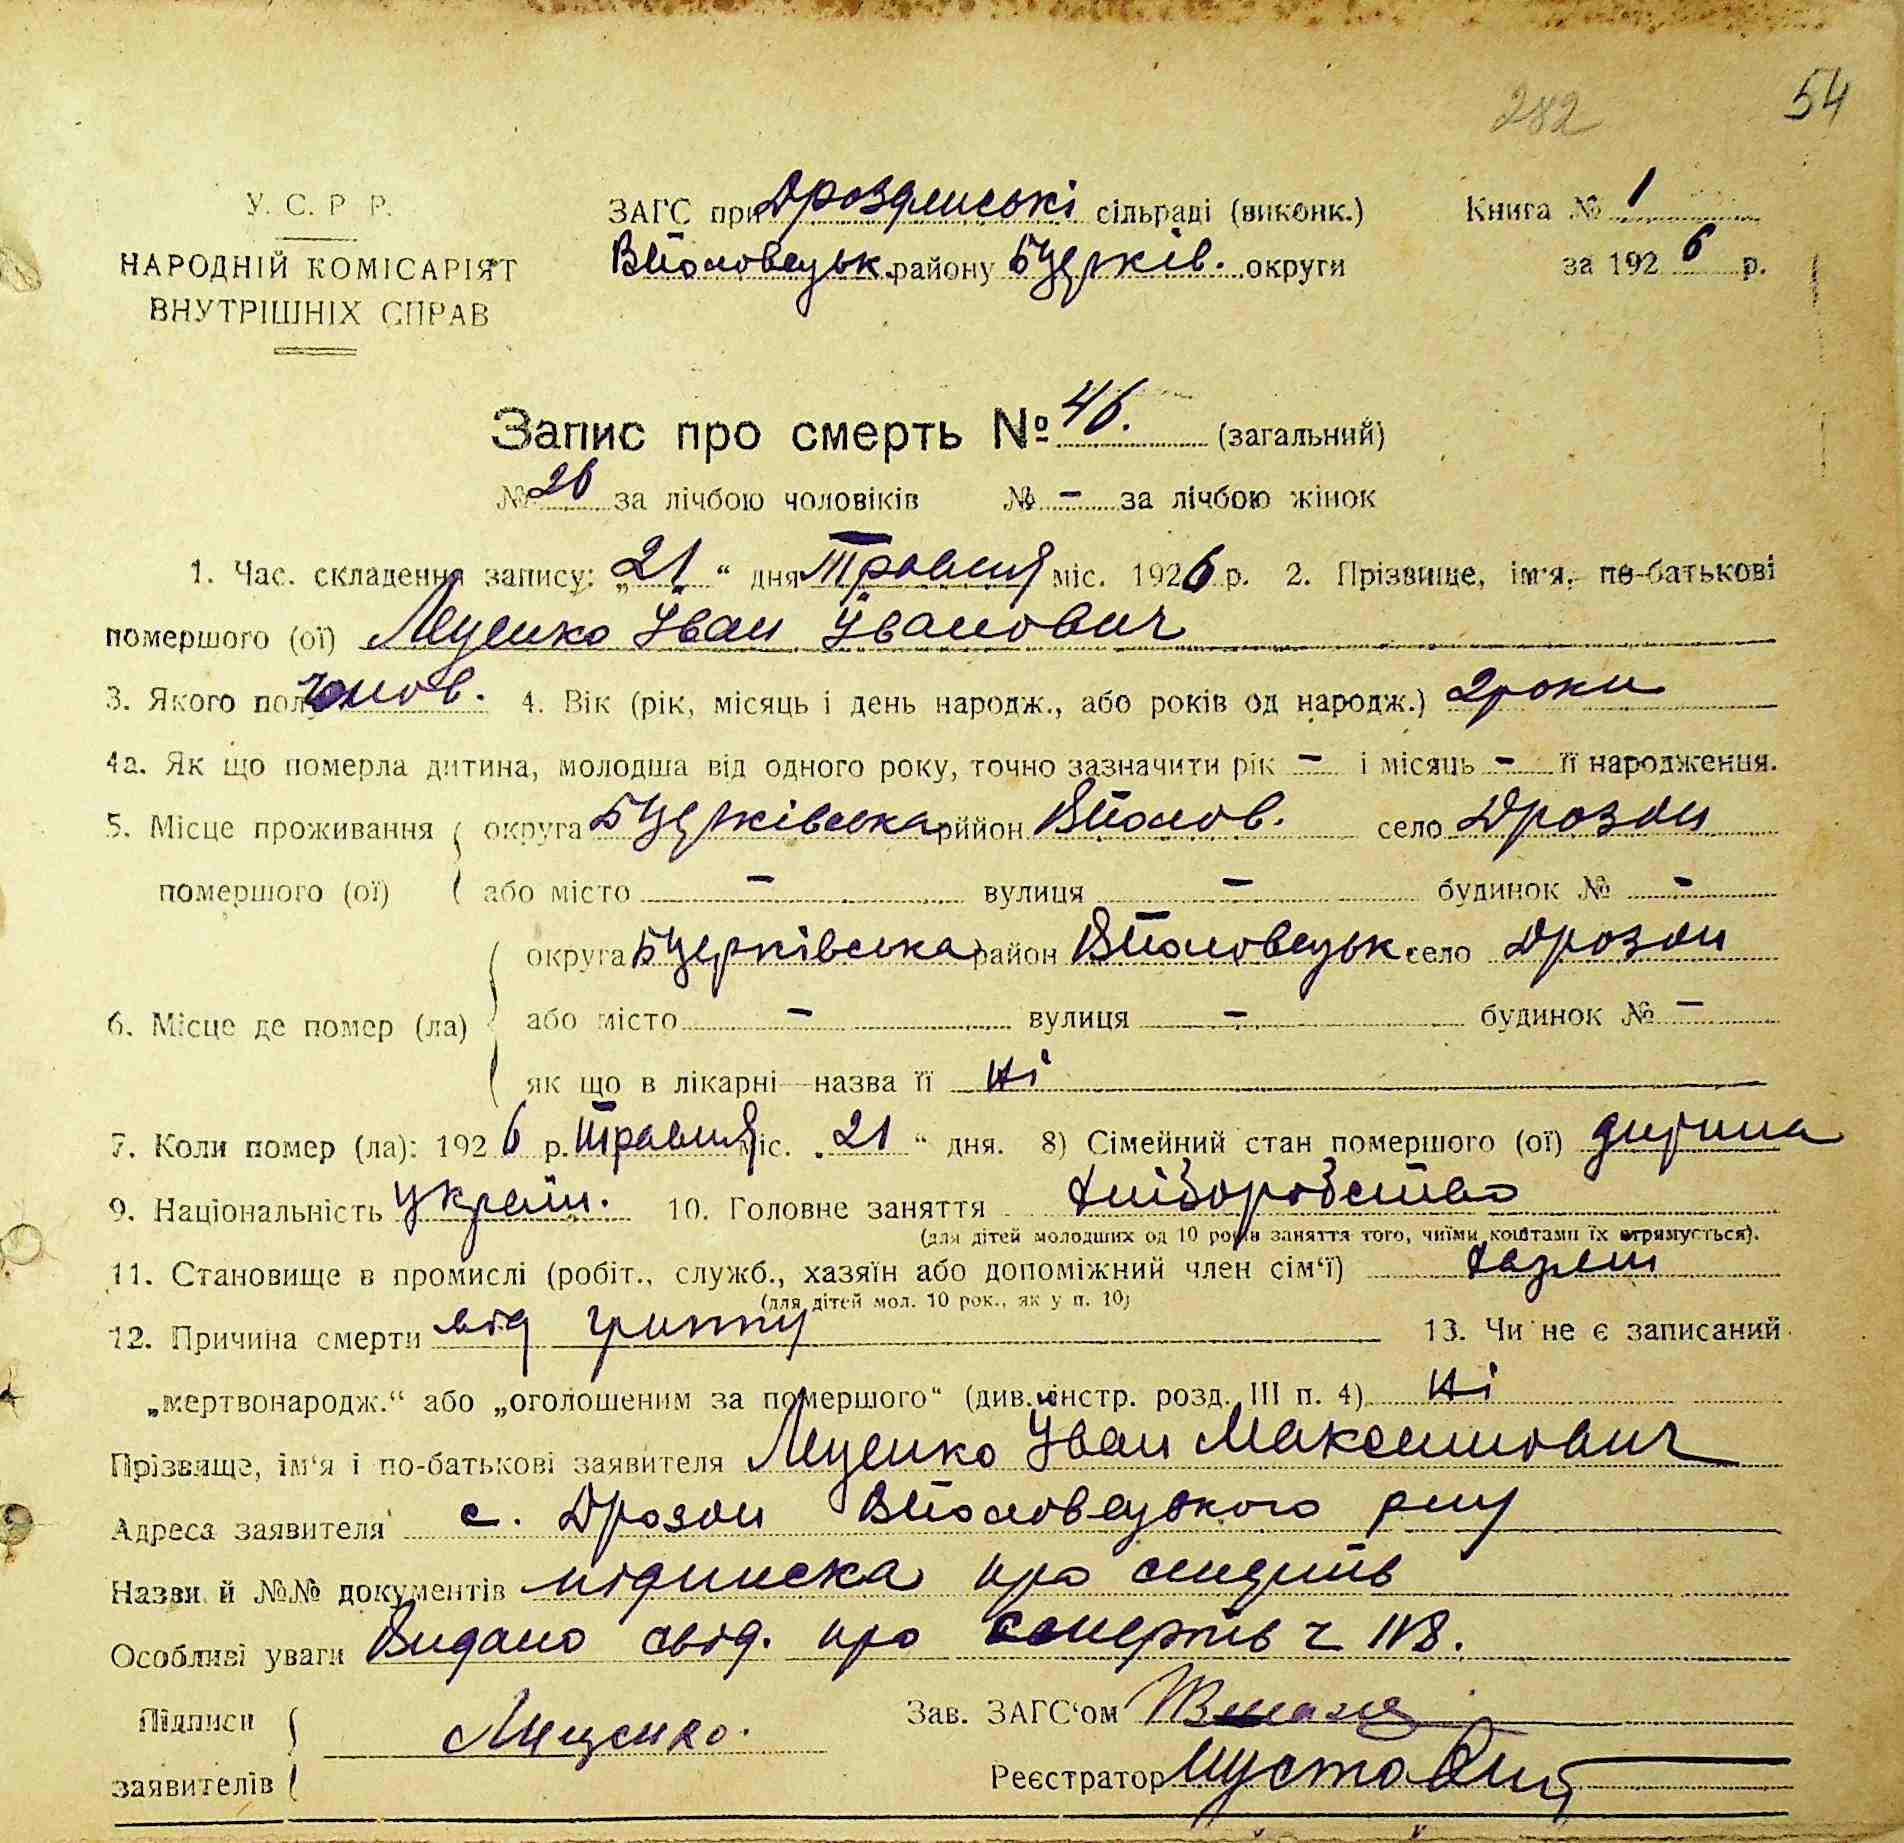 282 54
У. С. Р Р.
ЗАГС при Дрозднській сільраді (виконк.)
Книга № 1
НАРОДНІЙ КОМІСАРІЯТ
ВНУТРІШНІХ СПРАВ
ВПоловецьк. району БЦерків. округи
за 1926 р.
Запис про смерть № 46. (загальний)
№ 26 за лічбою чоловіків № – за лічбою жінок
1. Час. складення запису: „21“ дня Травня міс. 1926 р. 2. Прізвище, ім'я, по-батькові
помершого (ої) Іван Іванович
3. Якого полу чолов. 4. Вік (рік, місяць і день народж., або років од народж.) 2 роки
4а. Як що померла дитина, молодша від одного року, точно зазначити рік – і місяць – її народження.
5. Місце проживання округа БЦерківська рййон ВПолов. село Дрозди
помершого (ої) або місто – вулиця – будинок № –
округа БЦерківська район ВПоловецьк село Дрозди
6. Місце де помер (ла) або місто – вулиця – будинок № –
як що в лікарні—назва її Ні
7. Коли помер (ла): 1926 р. Травня міс. „21“ дня. 8) Сімейний стан помершого (ої) дитина
9. Національність україн. 10. Головне заняття хліборобство
(для дітей молодших од 10 років заняття того, чиїми коштами їх отримується).
11. Становище в промислі (робіт., служб., хазяїн або допоміжний член сім'ї) хазяїн
(для дітей мол. 10 рок., як у п. 10)
12. Причина смерти від гриппу 13. Чи не є записаний
„мертвонародж.“ або „оголошеним за помершого“ (див. інстр. розд. III п. 4) Ні
Прізвище, ім'я і по-батькові заявителя Іван Максимович
Адреса заявителя с. Дрозди ВПоловецького р-ну
Назви й №№ документів підписка про смерть
Особливі уваги Видано свід. про смерть ч 118.
Підписи
заявителів
Зав. ЗАГС'ом
Реєстратор